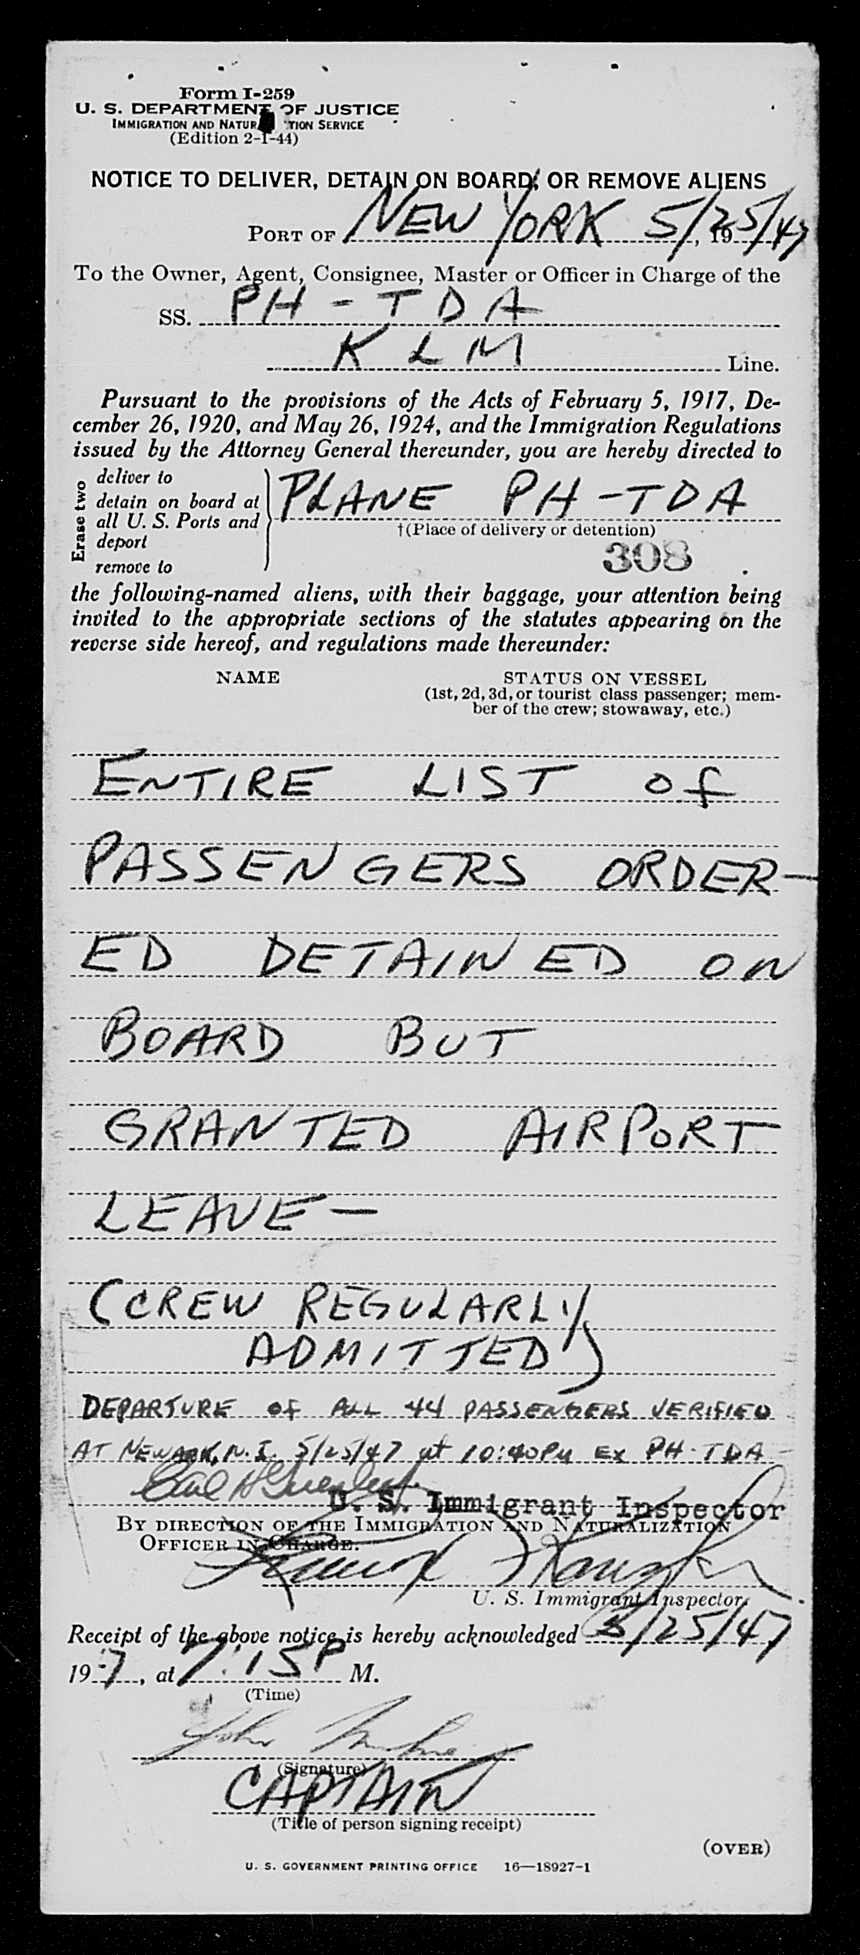 Form I-259
U. S. DEPARTMENT OF JUSTICE
IMMIGRATION AND NATUR TION SERVICE
(Edition 2-1-44)
NOTICE TO DELIVER, DETAIN ON BOARD, OR REMOVE ALIENS
PORT OF NEW YORK 5/25/47, 19
To the Owner, Agent, Consignee, Master or Officer in Charge of the
SS. PH-TDA
KLM Line.
Pursuant to the provisions of the Acts of February 5, 1917, De-
cember 26, 1920, and May 26, 1924, and the Immigration Regulations
issued by the Attorney General thereunder, you are hereby directed to
Erase two
deliver to
detain on board at
all U. S. Ports and
deport
remove to
PLANE PH-TDA
†(Place of delivery or detention)
308
the following-named aliens, with their baggage, your attention being
invited to the appropriate sections of the statutes appearing on the
reverse side hereof, and regulations made thereunder:
NAME STATUS ON VESSEL
(1st, 2d, 3d, or tourist class passenger; mem-
ber of the crew; stowaway, etc.)
ENTIRE LIST of
PASSENGERS ORDER-
ED DETAINED ON
BOARD BUT
GRANTED AIRPORT
LEAVE-
(CREW REGULARLY
ADMITTED)
DEPARTURE of ALL 44 PASSENGERS VERIFIED
AT NEWARK, N.J. 5/25/47 at 10:40PM EX PH-TDA-
U. S. Immigrant Inspector
BY DIRECTION OF THE IMMIGRATION AND NATURALIZATION
OFFICER IN CHARGE.
U. S. Immigrant Inspector.
Receipt of the above notice is hereby acknowledged 5/25/47
19 7, at 7:15P M.
(Time)
John
(Signature)
CAPTAIN
(Title of person signing receipt)
(OVER)
U. S. GOVERNMENT PRINTING OFFICE 16—18927-1